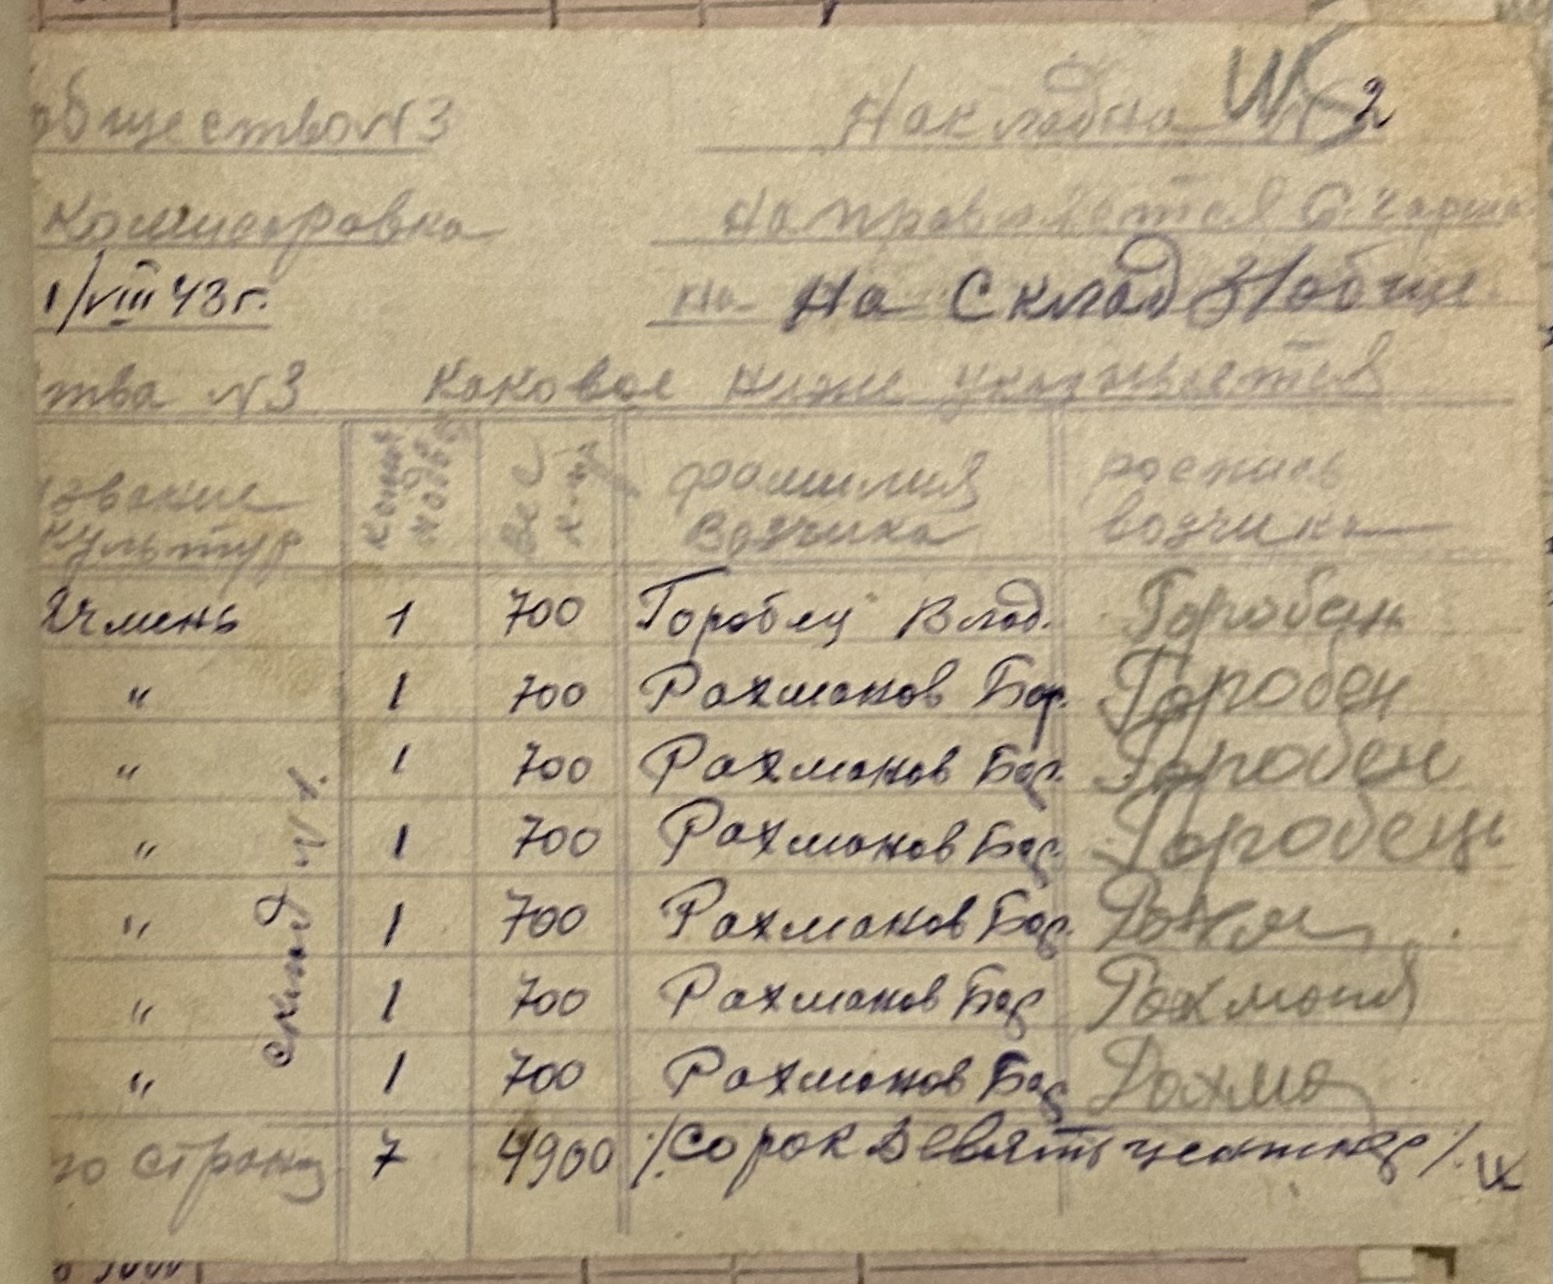 общество №3 Накладна № 2
Комисаровка Направляется С. гарма
1/VIII 43 г. на На Склад З/обще
тва №3 каковое ниже указывается
ование культур вес фамилия возчика роспись возчика
Ячмень 1 700 Горобец Влад. Горобець
" 1 700 Рахманов Бор. Горобец
" 1 700 Рахманов Бор. Горобец
" 1 700 Рахманов Бор. Горобець
" 1 700 Рахманов Бор. Рахм
" 1 700 Рахманов Бор Рахманов
" 1 700 Рахманов Бор Рахма
склад №1.
по страниц 7 4900 /.Сорок девять центнер/.